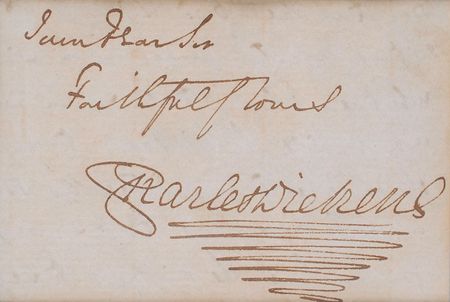 I am Dear Sir
Faithfully Yours
Charles Dickens